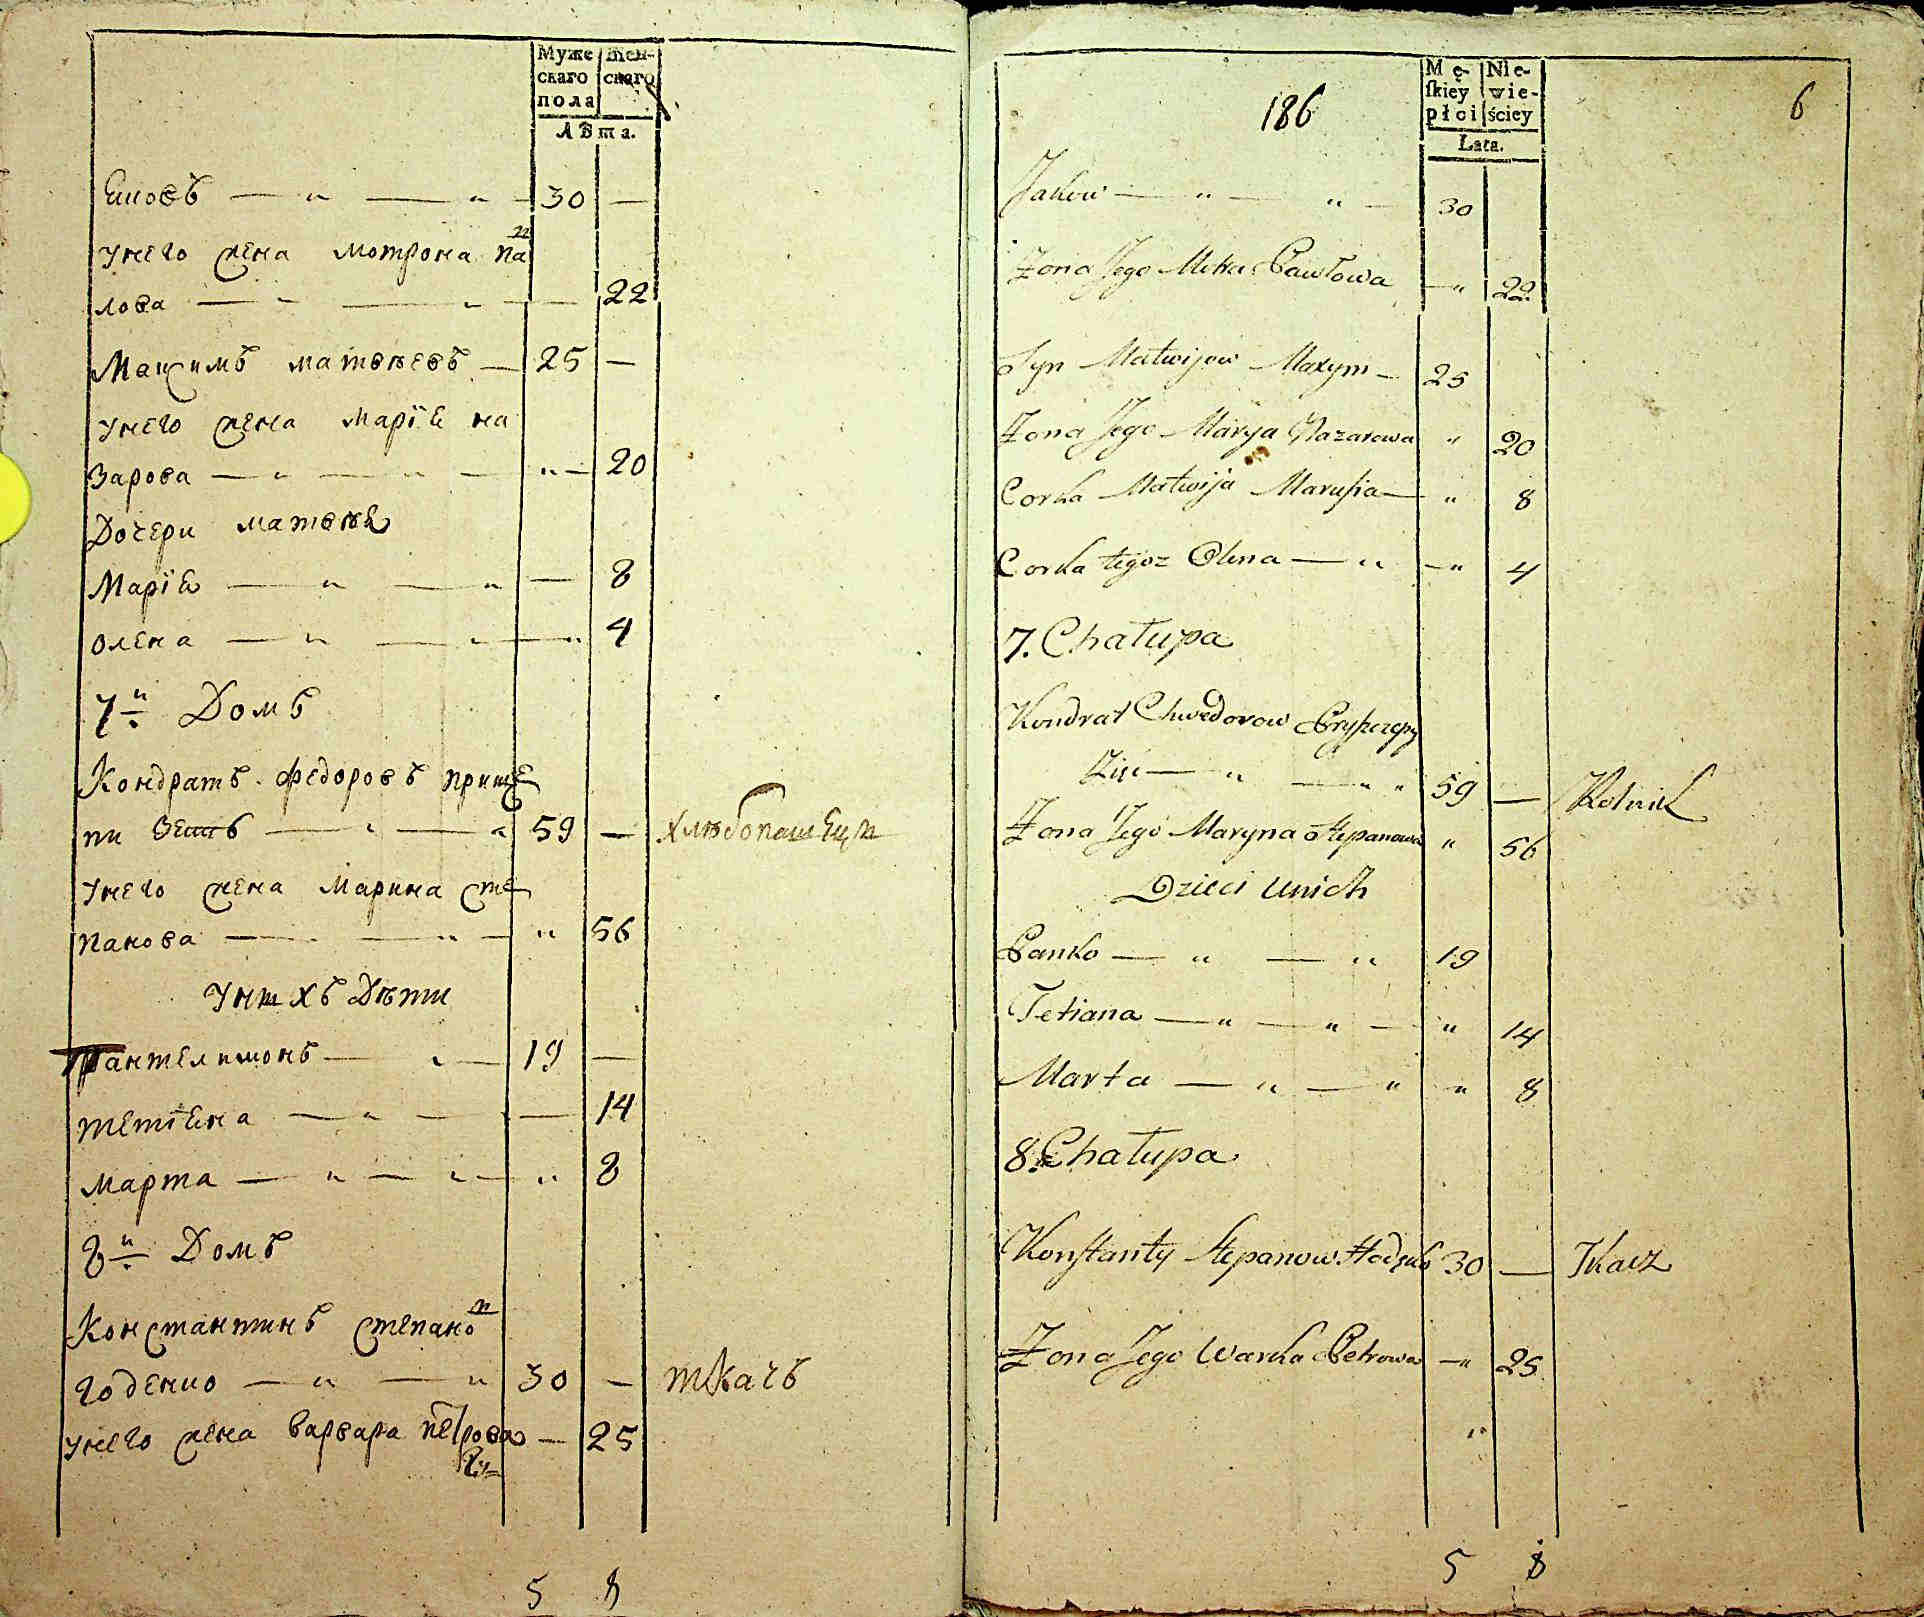 Муже
скаго
пола
Жен-
скаго
Лѣта.
Яковъ — „ — „ — 30 —
у него жена мотрона па
лова — „ — „ — 22
Максимъ матвѣевъ — 25 —
у него жена марїя на
зарова — „ — „ — „ — 20
Дочери матвѣя
Марїя — „ — „ — 8
олена — „ — „ — „ 4
7й Домъ
Кондратъ федоровъ прище
пи зять — „ — „ 59 — хлѣбопашецъ
у него жена Марина сте
панова — — „ — „ 56
у нихъ Дѣти
Пантелимонъ — „ — 19 —
тетїяна — „ — — 14
марта — „ — „ — „ 8
8й Домъ
Константинъ степано
годенко — „ — „ 30 — ткачъ
у него жена варвара петрова — 25
5 8
186
6
Mę-
ſkiey
płci
Nie-
wie-
ściey
Lata.
Jakow — „ — „ — 30
Żona Jego Motra Pawłowa — „ 22
Syn Matwijow Maxym — 25
Żona Jego Marya Nazarowa „ 20
Corka Matwija Marusia — „ 8
Corka tegoż Olena — „ — „ 4
7. Chałupa
Kondrat Chwedorow Pryszczepy
Zięć — „ — „ „ 59 — Rolnik
Żona Jego Maryna Stepanowa „ 56
Dzieci unich
Panko — „ — „ 19
Tetiana — „ — „ — „ 14
Marta — „ — „ „ 8
8. Chałupa
Konstanty Stepanow 30 — Tkacz
Żona Jego Warka Petrowa — „ 25
„
5 8